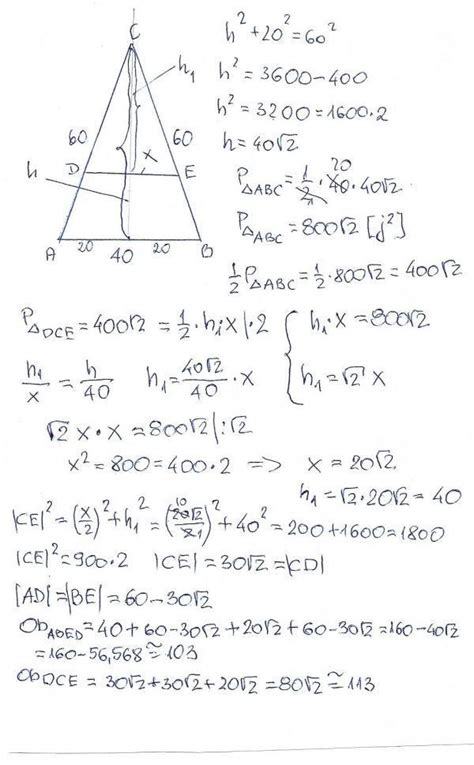 C
h² + 20² = 60²
h₁
h² = 3600 - 400
h² = 3200 = 1600·2
60 60
h = 40√2
D x E
h
P△ABC = 1/2 · 40 · 40√2
20
P△ABC = 800√2 [j²]
A 20 40 20 B
1/2 P△ABC = 1/2 · 800√2 = 400√2
P△DCE = 400√2 = 1/2 · h₁·x |·2 { h₁·x = 800√2
h₁/x = h/40 h₁ = 40√2/40 · x h₁ = √2 x
√2 x·x = 800√2 |:√2
x² = 800 = 400·2 => x = 20√2
h₁ = √2·20√2 = 40
|CE|² = (x/2)² + h₁² = (20√2/2)² + 40² = 200 + 1600 = 1800
10 1
|CE|² = 900·2 |CE| = 30√2 = |CD|
|AD| = |BE| = 60 - 30√2
Ob ABED = 40 + 60 - 30√2 + 20√2 + 60 - 30√2 = 160 - 40√2
= 160 - 56,568 ≅ 103
Ob DCE = 30√2 + 30√2 + 20√2 = 80√2 ≅ 113